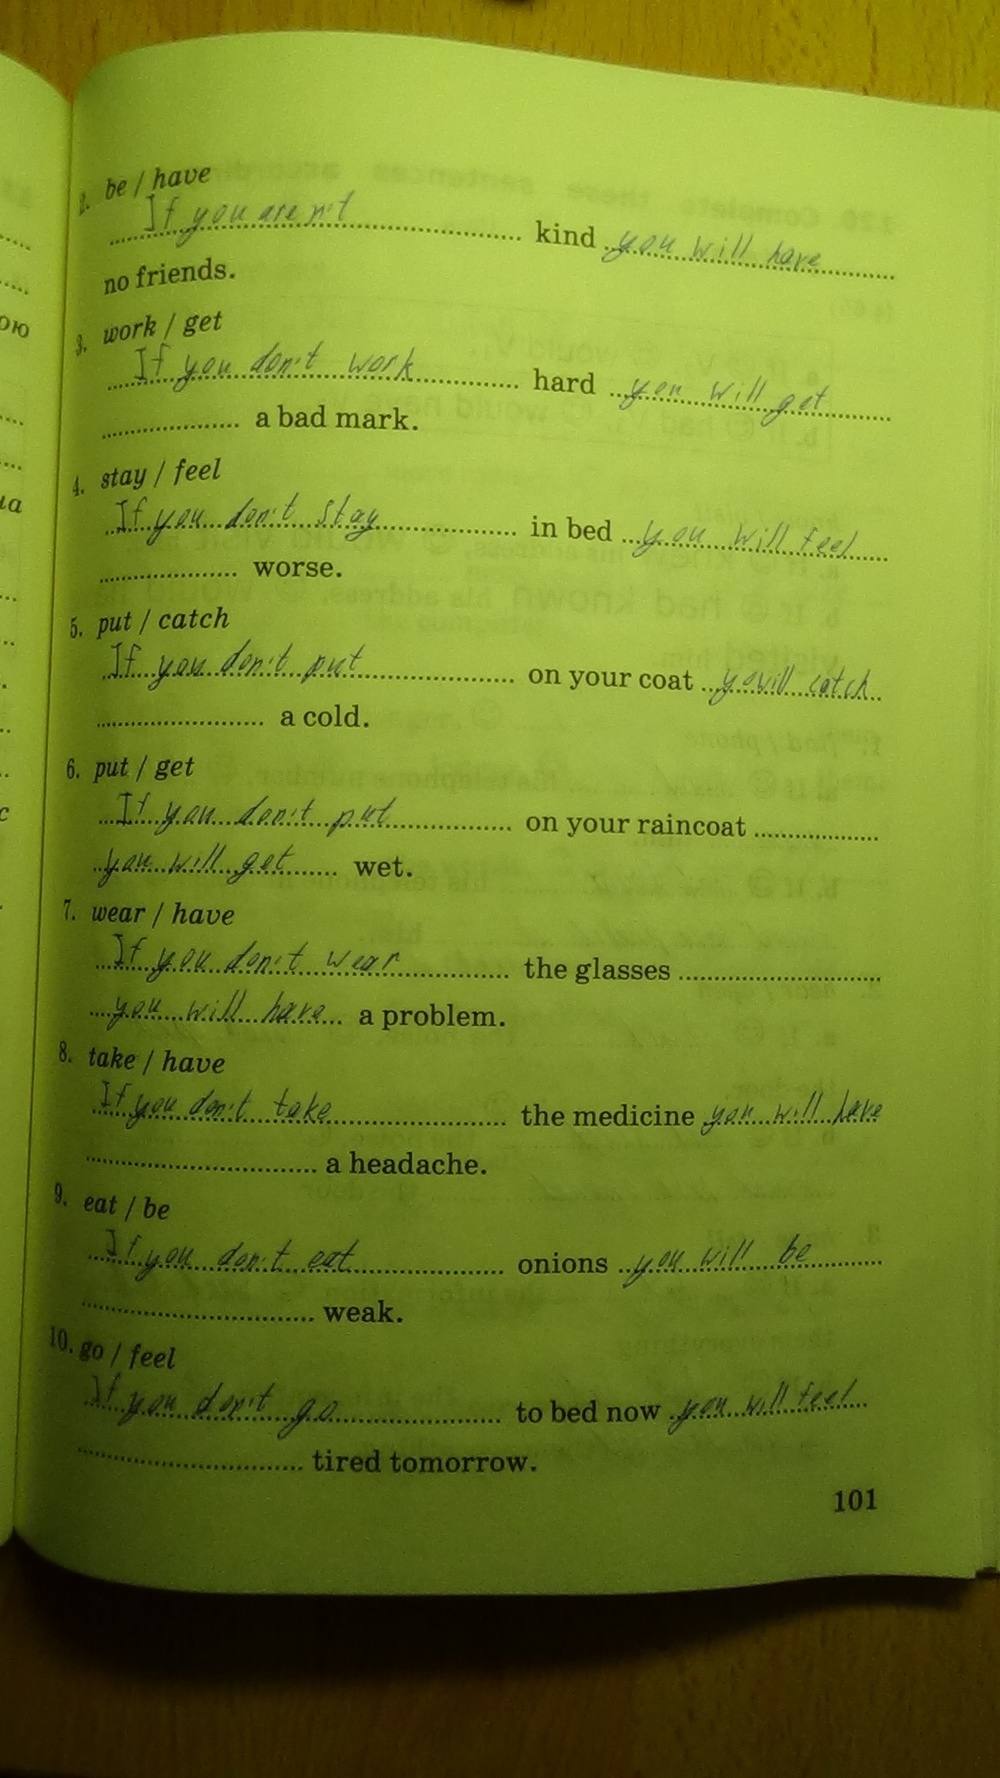 2. be / have
If you aren't kind you will have
no friends.
3. work / get
If you don't work hard you will get
a bad mark.
4. stay / feel
If you don't stay in bed you will feel
worse.
5. put / catch
If you don't put on your coat yowill catch
a cold.
6. put / get
If you don't put on your raincoat
you will get wet.
7. wear / have
If you don't wear the glasses
you will have a problem.
8. take / have
If you don't take the medicine you will have
a headache.
9. eat / be
If you don't eat onions you will be
weak.
10. go / feel
If you don't go to bed now you will feel
tired tomorrow.
101